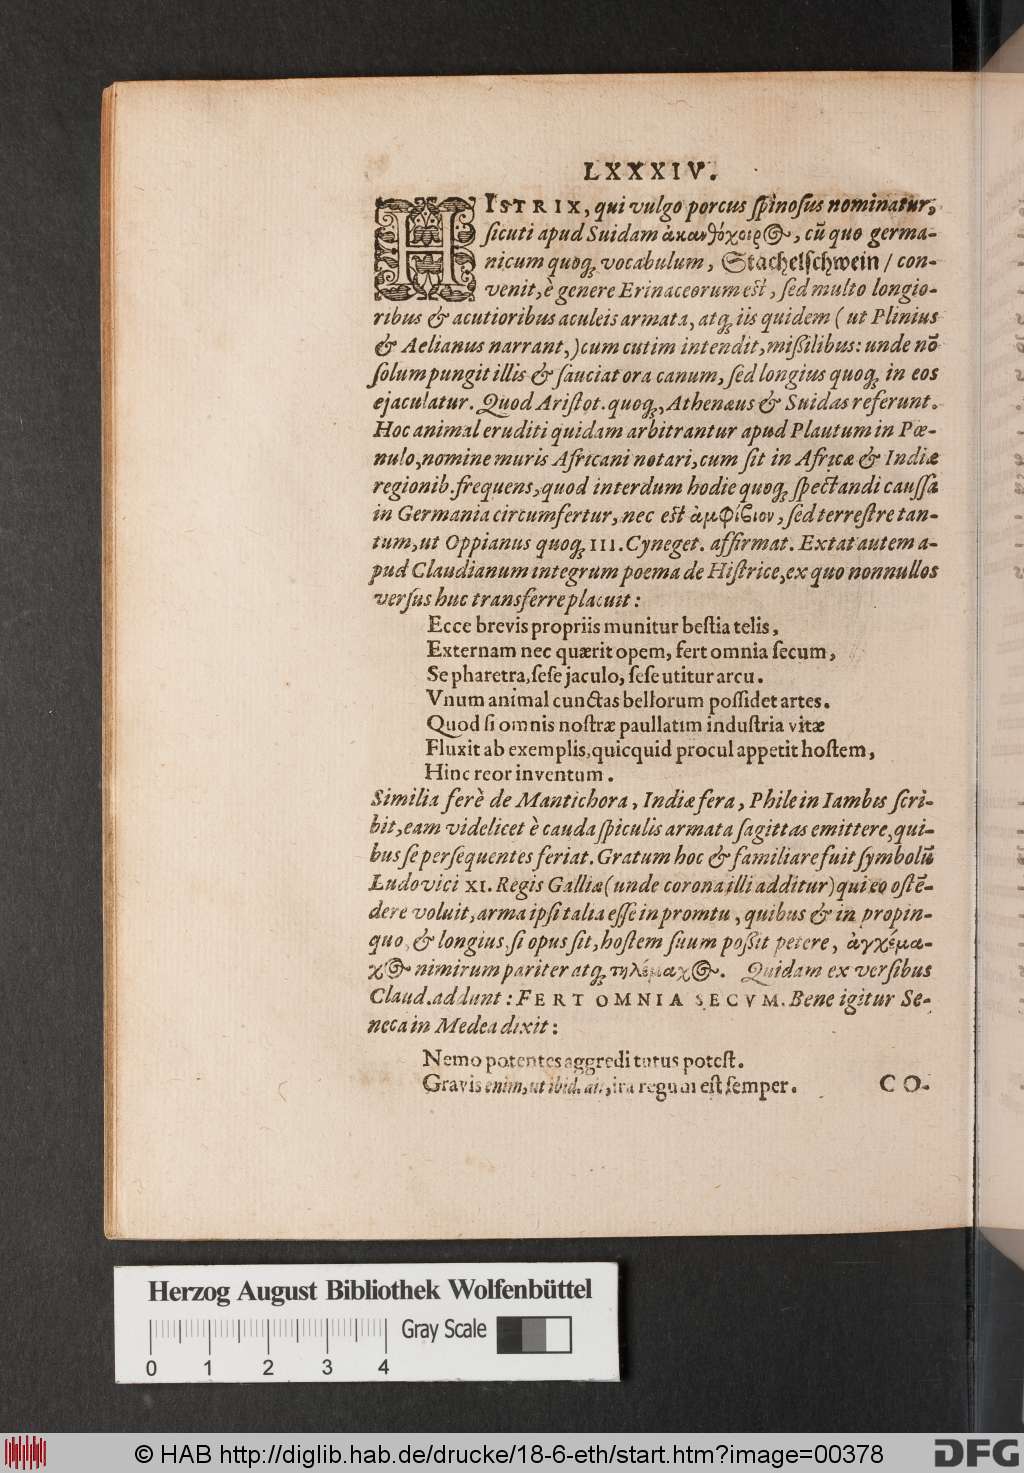 LXXXIV.
HISTRIX, qui vulgo porcus ſpinoſus nominatur,
ſicuti apud Suidam ἀκανθόχοιρος, cū quo germa-
nicum quoq; vocabulum, Stachelſchwein / con-
venit, è genere Erinaceorum est, ſed multo longio-
ribus & acutioribus aculeis armata, atq; iis quidem ( ut Plinius
& Aelianus narrant, ) cum cutim intendit, mißilibus: unde nō
ſolum pungit illis & ſauciat ora canum, ſed longius quoq; in eos
ejaculatur. Quod Ariſtot. quoq;, Athenæus & Suidas referunt.
Hoc animal eruditi quidam arbitrantur apud Plautum in Pœ-
nulo, nomine muris Africani notari, cum ſit in Africæ & Indiæ
regionib. frequens, quod interdum hodie quoq; ſpectandi cauſſa
in Germania circumfertur, nec est ἀμφίβιον, ſed terreſtre tan-
tum, ut Oppianus quoq; III. Cyneget. affirmat. Extat autem a-
pud Claudianum integrum poema de Hiſtrice, ex quo nonnullos
verſus huc transferre placuit :
Ecce brevis propriis munitur beſtia telis,
Externam nec quærit opem, fert omnia ſecum,
Se pharetra, ſeſe jaculo, ſeſe utitur arcu.
Vnum animal cunctas bellorum poſſidet artes.
Quod ſi omnis noſtræ paullatim induſtria vitæ
Fluxit ab exemplis, quicquid procul appetit hoſtem,
Hinc reor inventum.
Similia ferè de Mantichora, Indiæ fera, Phile in Iambis ſcri-
bit, eam videlicet è cauda ſpiculis armata ſagittas emittere, qui-
bus ſe perſequentes feriat. Gratum hoc & familiare fuit ſymbolū
Ludovici XI. Regis Galliæ (unde corona illi additur) qui eo oſtē-
dere voluit, arma ipſi talia eſſe in promtu, quibus & in propin-
quo, & longius, ſi opus ſit, hoſtem ſuum poßit petere, ἀγχέμα-
χος nimirum pariter atq; τηλέμαχος. Quidam ex verſibus
Claud. addunt : FERT OMNIA SECVM. Bene igitur Se-
neca in Medea dixit :
Nemo potentes aggredi tutus poteſt.
Gravis enim, ut ibid. ait, ira regum eſt ſemper.
CO-
Herzog August Bibliothek Wolfenbüttel
Gray Scale
0 1 2 3 4
© HAB http://diglib.hab.de/drucke/18-6-eth/start.htm?image=00378
DFG